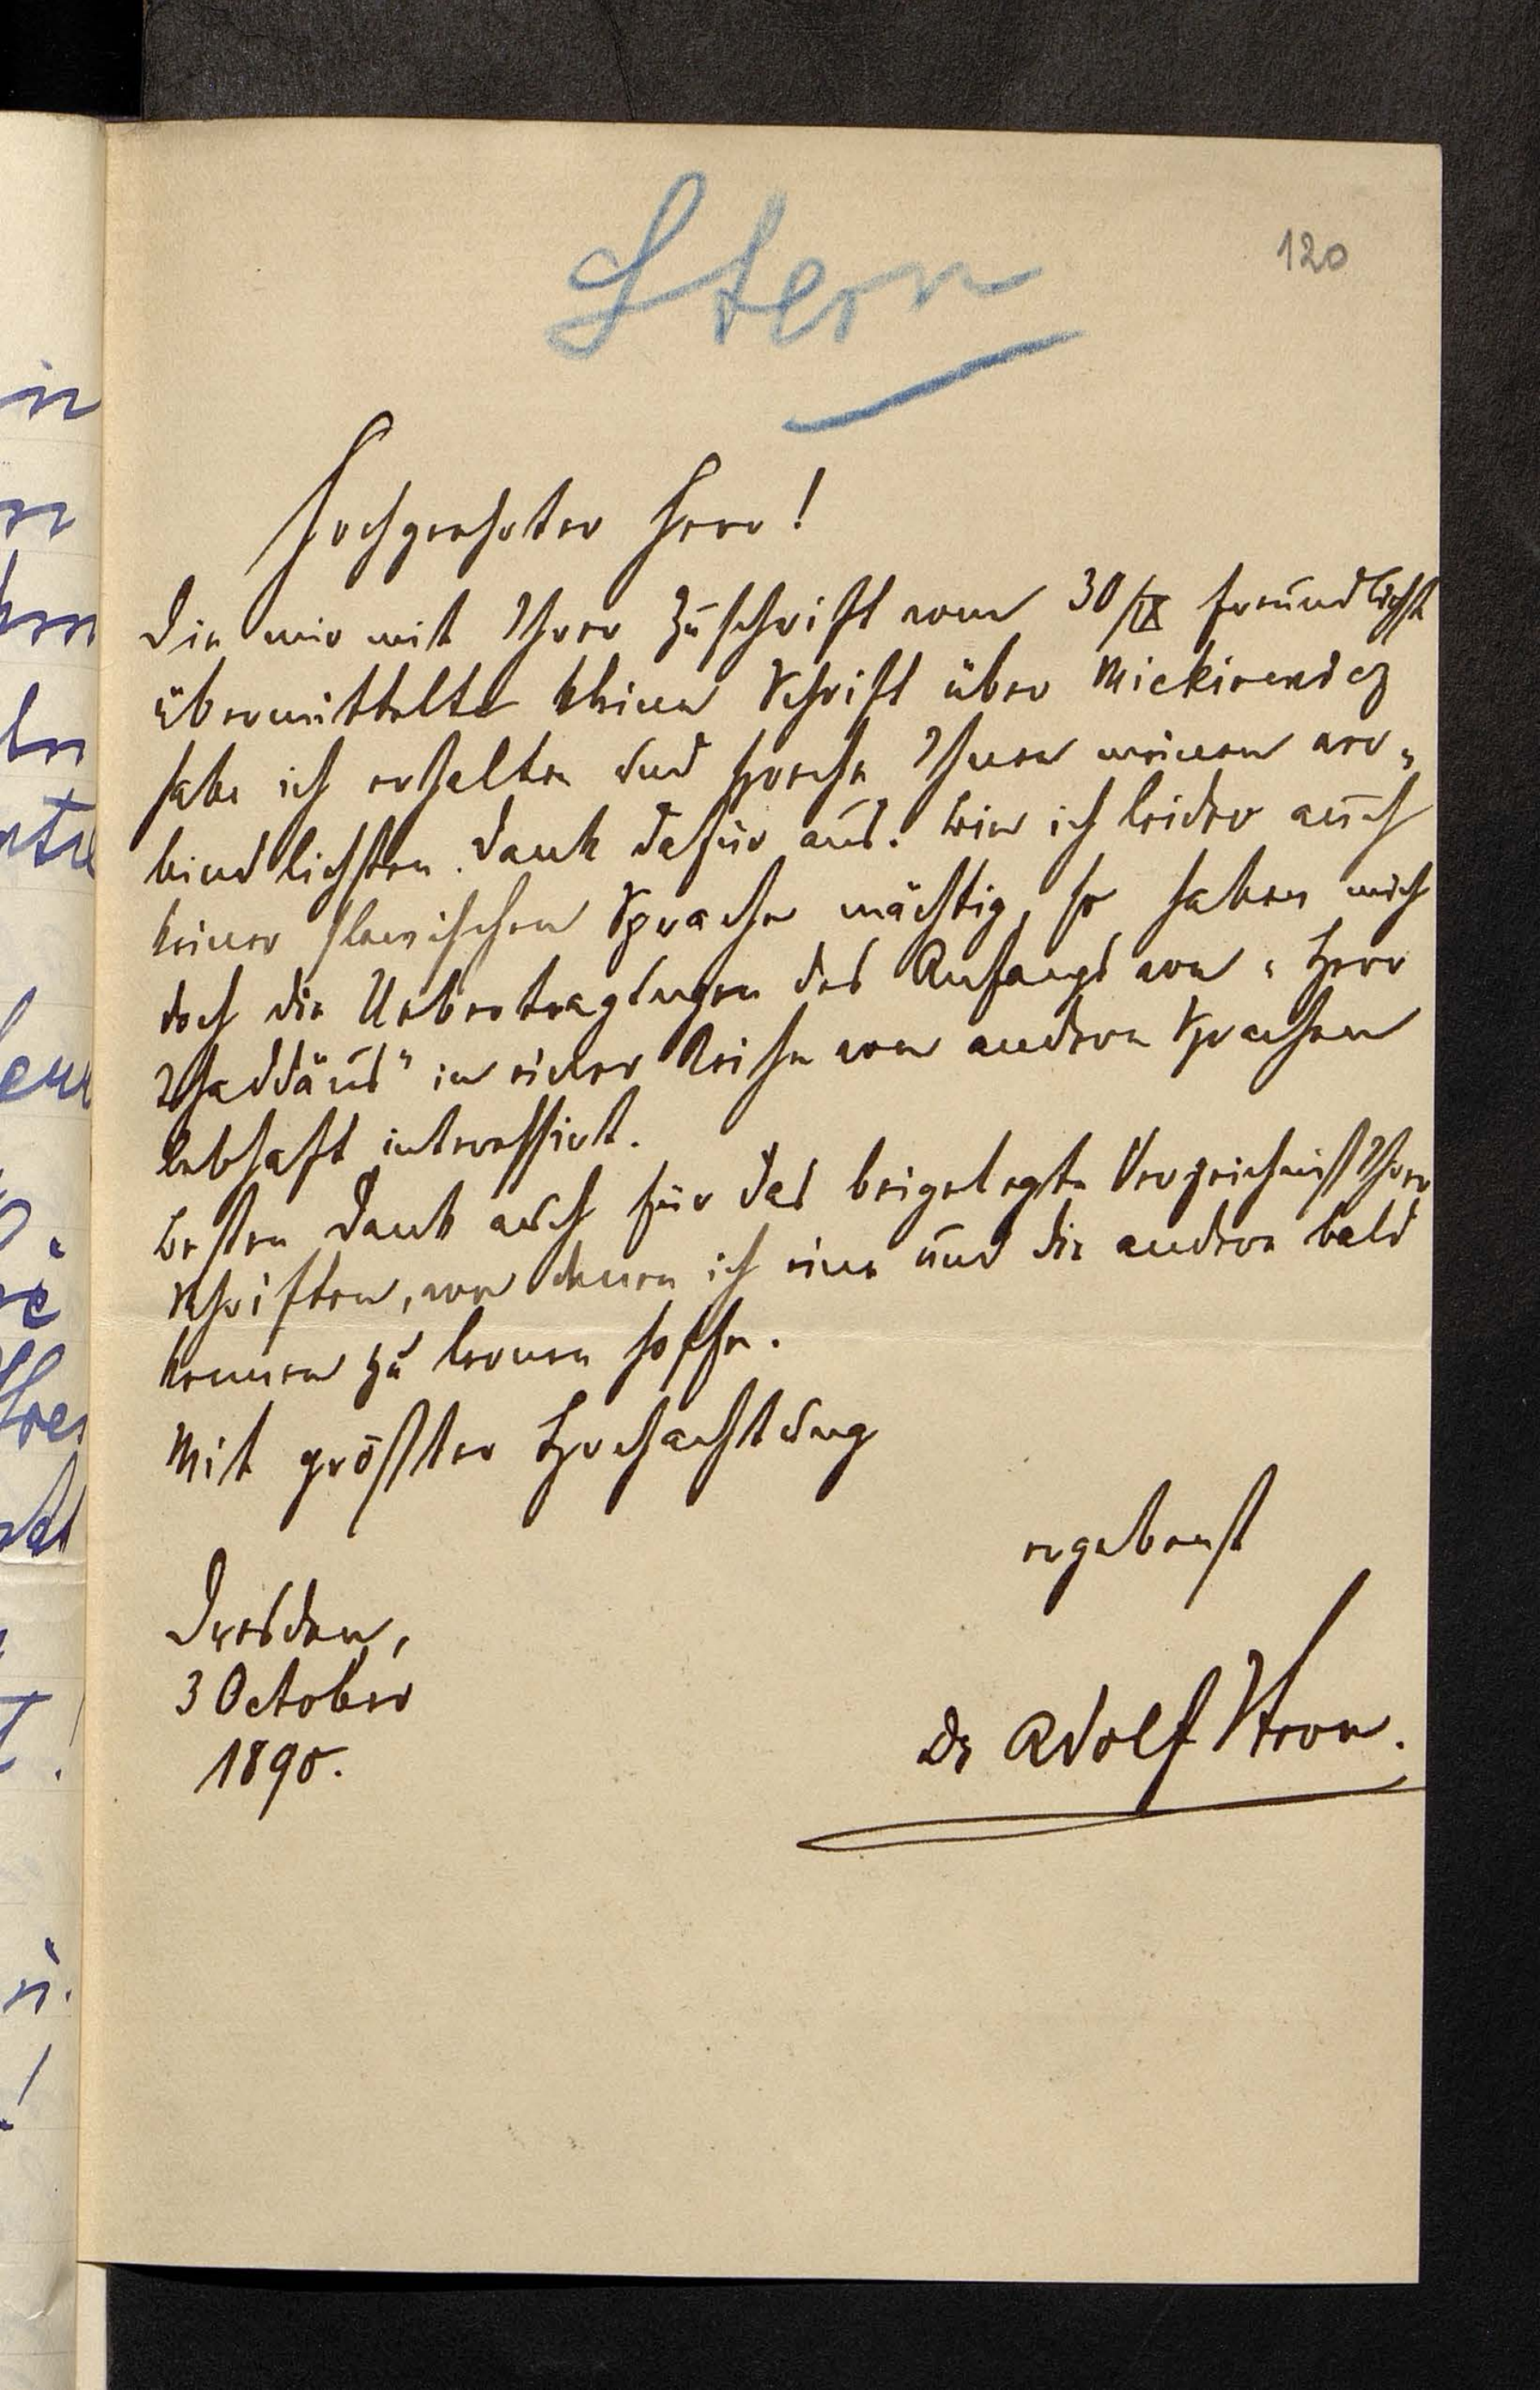 Stern
120
Hochgeehrter Herr!
Die mir mit Ihrer Zuschrift vom 30/IX freundlichst
übermittelte kleine Schrift über Mickiewicz
habe ich erhalten und spreche Ihnen meinen ver-
bindlichsten Dank dafür aus. Bin ich leider auch
keiner slavischen Sprache mächtig, so haben mich
doch die Uebertragungen des Anfangs von „Herr
Thaddäus" in einer Reihe von andern Sprachen
lebhaft interessirt.
Besten Dank auch für das beigelegte Verzeichniß Ihrer
Schriften, von denen ich eine und die andere bald
kennen zu lernen hoffe.
Mit größter Hochachtung
ergebenst
Dresden,
3 October
1890.
Dr Adolf Stern.